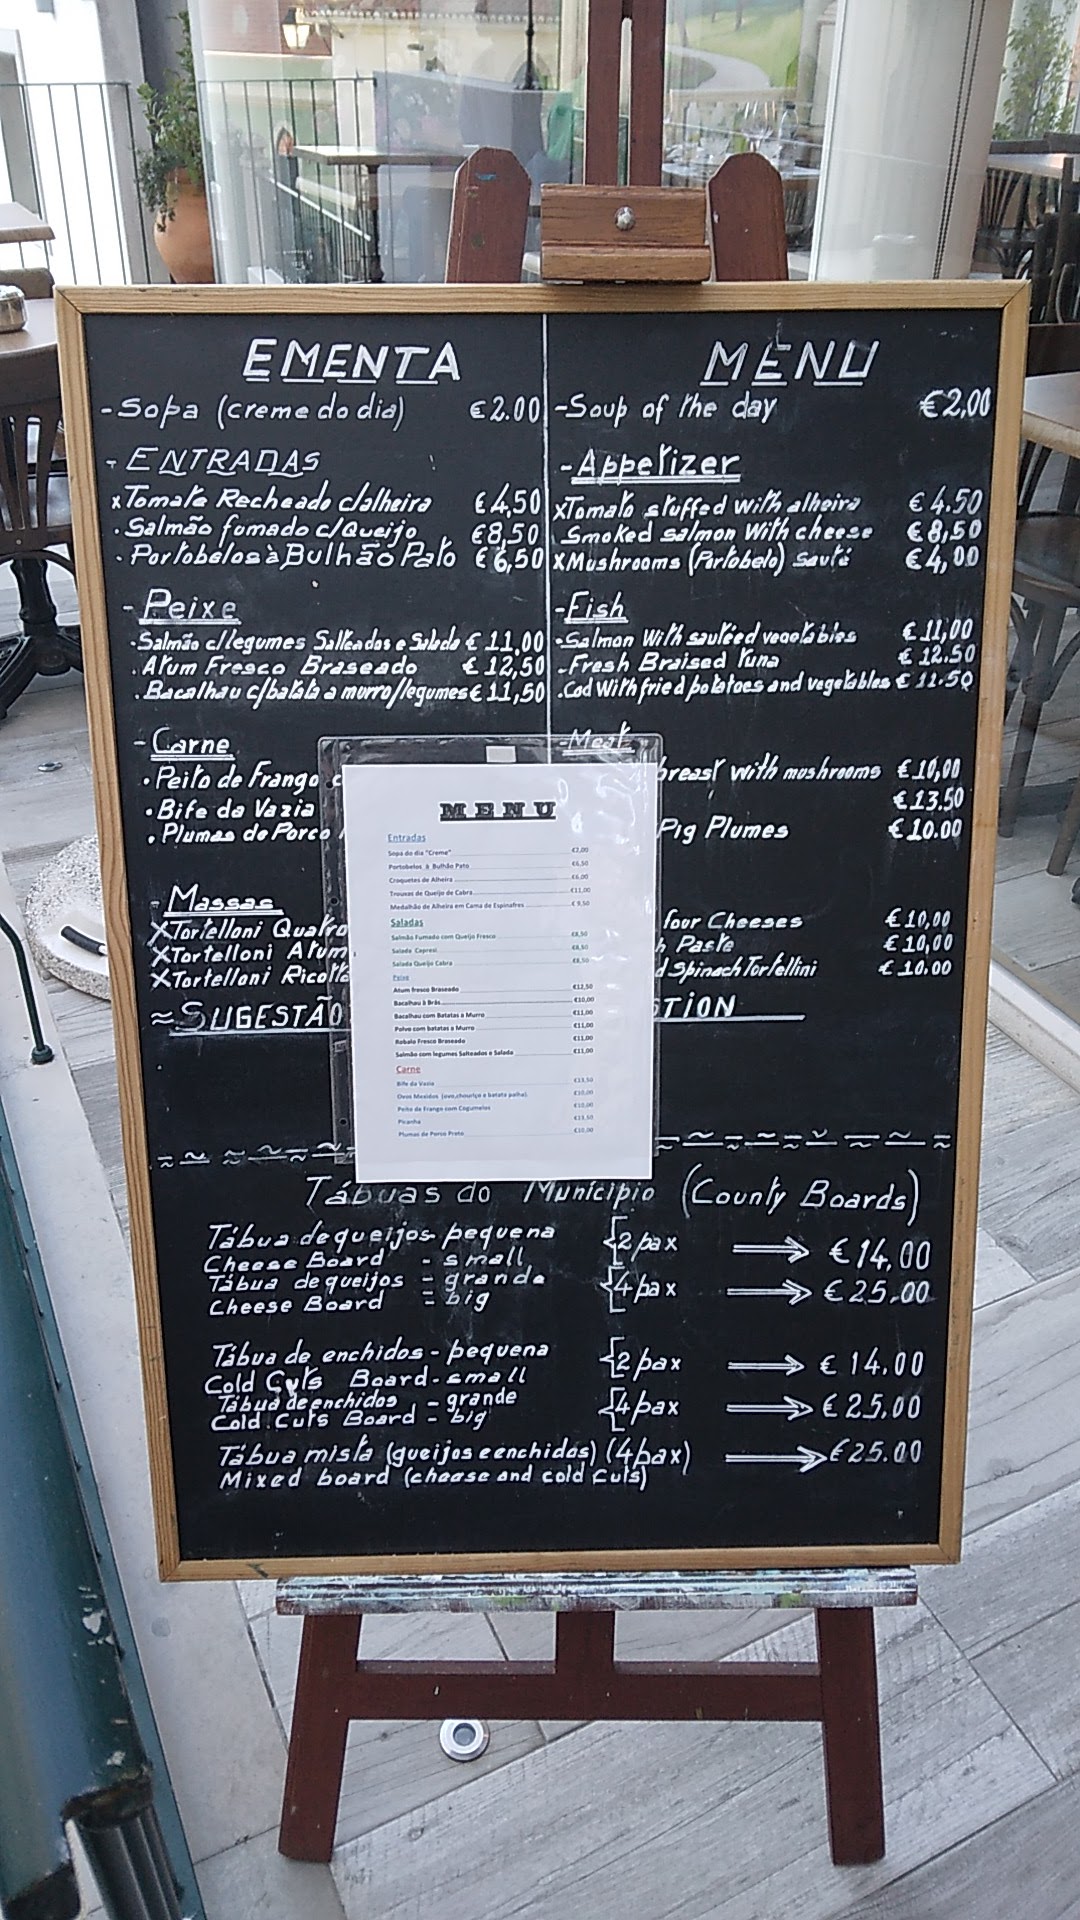 EMENTA
-Sopa (creme do dia) €2.00
-ENTRADAS
xTomate Recheado c/alheira €4,50
·Salmão fumado c/Queijo €8,50
·Portobelos à Bulhão Pato €6,50
-Peixe
·Salmão c/legumes Salteados e Salada €11,00
·Atum Fresco Braseado €12,50
·Bacalhau c/batata a murro/legumes €11,50
-Carne
·Peito de Frango c
·Bife da Vazia
·Plumas de Porco
-Massas
XTortelloni Quatro
XTortelloni Atum
XTortelloni Ricotta
≈SUGESTÃO
MENU
-Soup of the day €2,00
-Appetizer
xTomato stuffed with alheira €4.50
.Smoked salmon With cheese €8,50
xMushrooms (Portobelo) Sauté €4,00
-Fish
-Salmon With sautéed vegetables €11,00
-Fresh Braised tuna €12.50
.Cod With fried potatoes and vegetables €11.50
-Meat
breast with mushrooms €10,00
€13.50
Pig Plumes €10.00
four Cheeses €10,00
h Paste €10,00
d Spinach Tortellini €10.00
STION
MENU
Entradas
Sopa do dia "Creme" €2,00
Portobelos à Bulhão Pato €6,50
Croquetes de Alheira €6,00
Trouxas de Queijo de Cabra €11,00
Medalhão de Alheira em Cama de Espinafres € 9,50
Saladas
Salmão Fumado com Queijo Fresco €8,50
Salada Capresi €8,50
Salada Queijo Cabra €8,50
Peixe
Atum fresco Braseado €12,50
Bacalhau à Brás €10,00
Bacalhau com Batatas a Murro €11,00
Polvo com batatas a Murro €11,00
Robalo Fresco Braseado €11,00
Salmão com legumes Salteados e Salada €11,00
Carne
Bife da Vazia €13,50
Ovos Mexidos (ovo,chouriço e batata palha) €10,00
Peito de Frango com Cogumelos €10,00
Picanha €13,50
Plumas de Porco Preto €10,00
Tábuas do Município (County Boards)
Tábua de queijos-pequena {2 pax ⟹ €14,00
Cheese Board - small
Tábua de queijos - grande {4 pax ⟹ €25.00
Cheese Board = big
Tábua de enchidos - pequena {2 pax ⟹ €14.00
Cold Cuts Board-small
Tábua de enchidos - grande {4 pax ⟹ €25,00
Cold Cuts Board = big
Tábua mista (queijos e enchidos) (4 pax) ⟹ €25.00
Mixed board (cheese and cold cuts)